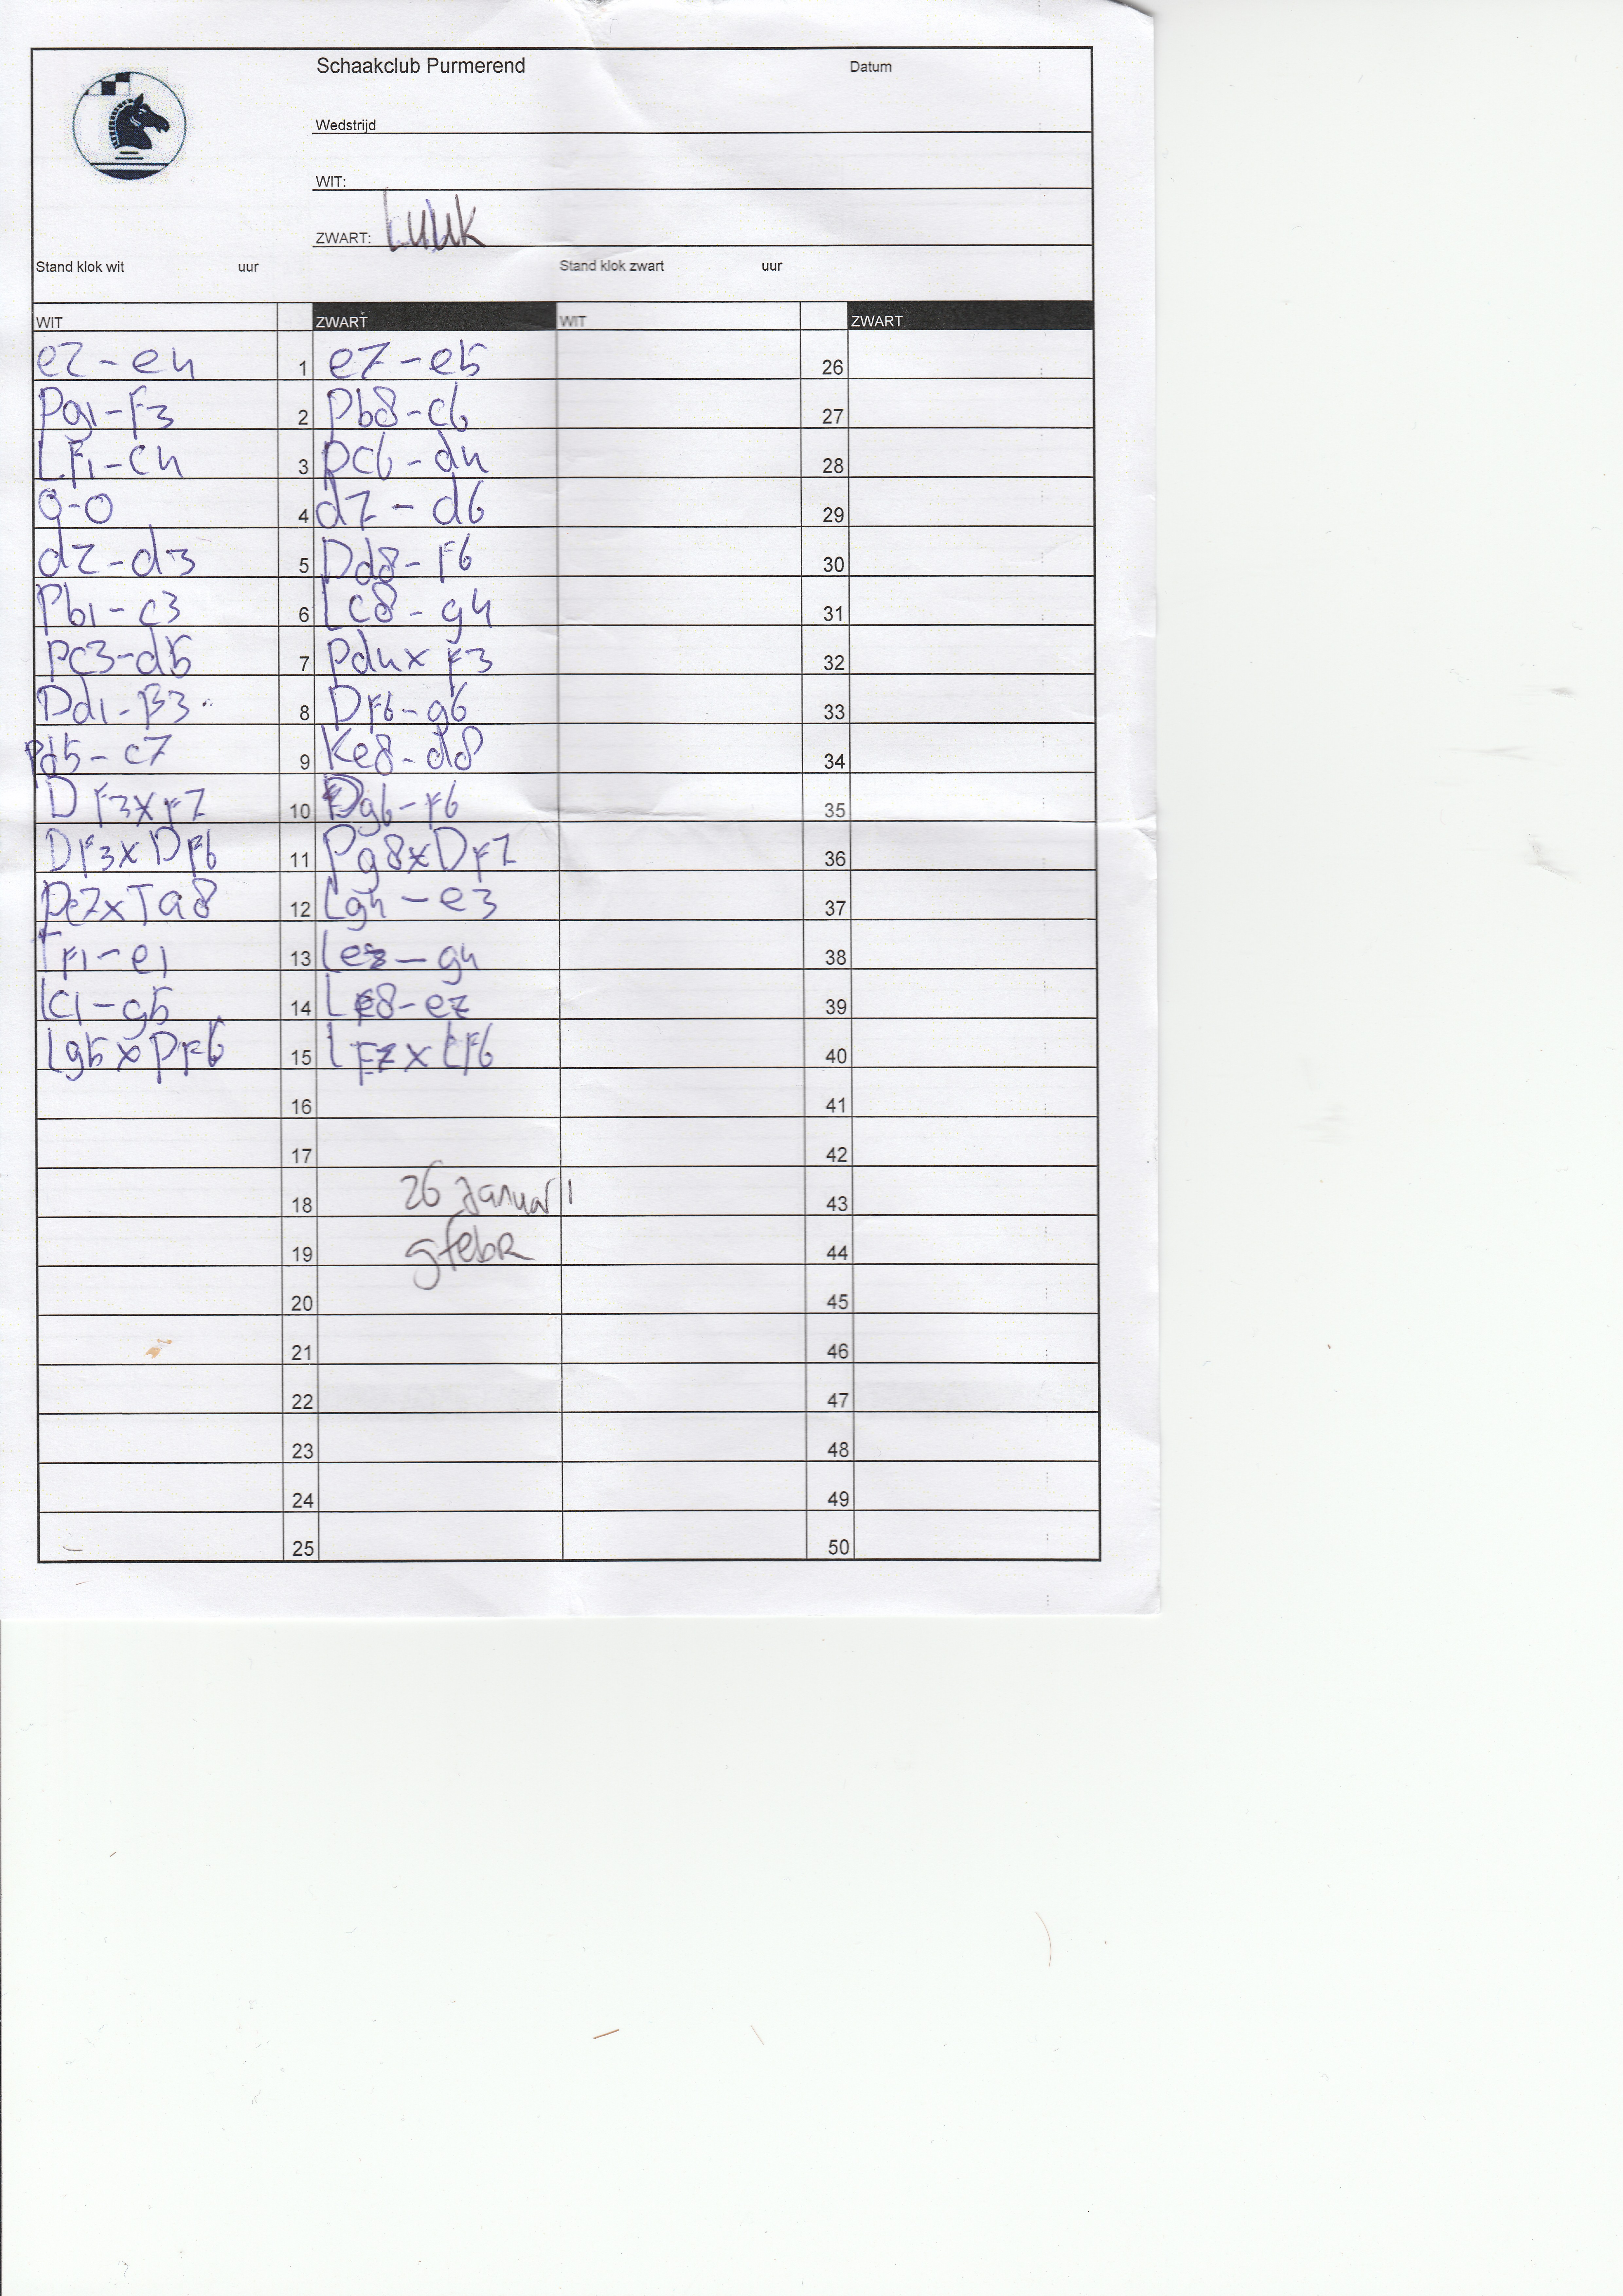 Schaakclub Purmerend Datum
Wedstrijd
WIT:
ZWART: Luuk
Stand klok wit uur Stand klok zwart uur
WIT ZWART WIT ZWART
e2-e4 1 e7-e5 26
Pg1-F3 2 Pb8-c6 27
LF1-c4 3 Pc6-d4 28
0-0 4 d7-d6 29
d2-d3 5 Dd8-F6 30
Pb1-c3 6 Lc8-g4 31
Pc3-d5 7 Pd4xF3 32
Dd1-F3 8 DF6-g6 33
Pd5-c7 9 Ke8-d8 34
DF3xF7 10 Dg6-F6 35
DF3xDF6 11 Pg8xDF7 36
Pc7xTa8 12 Lg4-e3 37
TF1-e1 13 Le3-g4 38
Lc1-g5 14 LF8-e7 39
Lg5xPF6 15 LF7xLF6 40
16 41
17 42
26 januari
18 43
9 febr
19 44
20 45
21 46
22 47
23 48
24 49
25 50